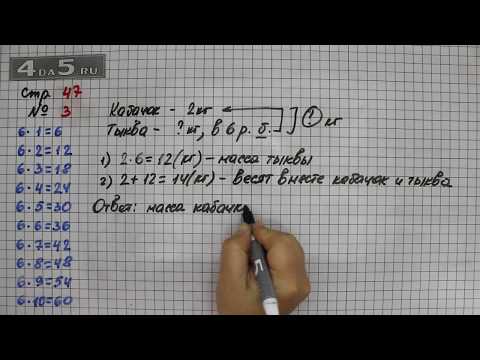 4DA5.RU
Стр 47
№ 3
6·1=6
6·2=12
6·3=18
6·4=24
6·5=30
6·6=36
6·7=42
6·8=48
6·9=54
6·10=60
Кабачок - 2кг
Тыква - ? кг, в 6 р. б. ? кг
1) 2·6=12(кг) - масса тыквы
2) 2+12=14(кг) - весят вместе кабачок и тыква
Ответ: масса кабачк